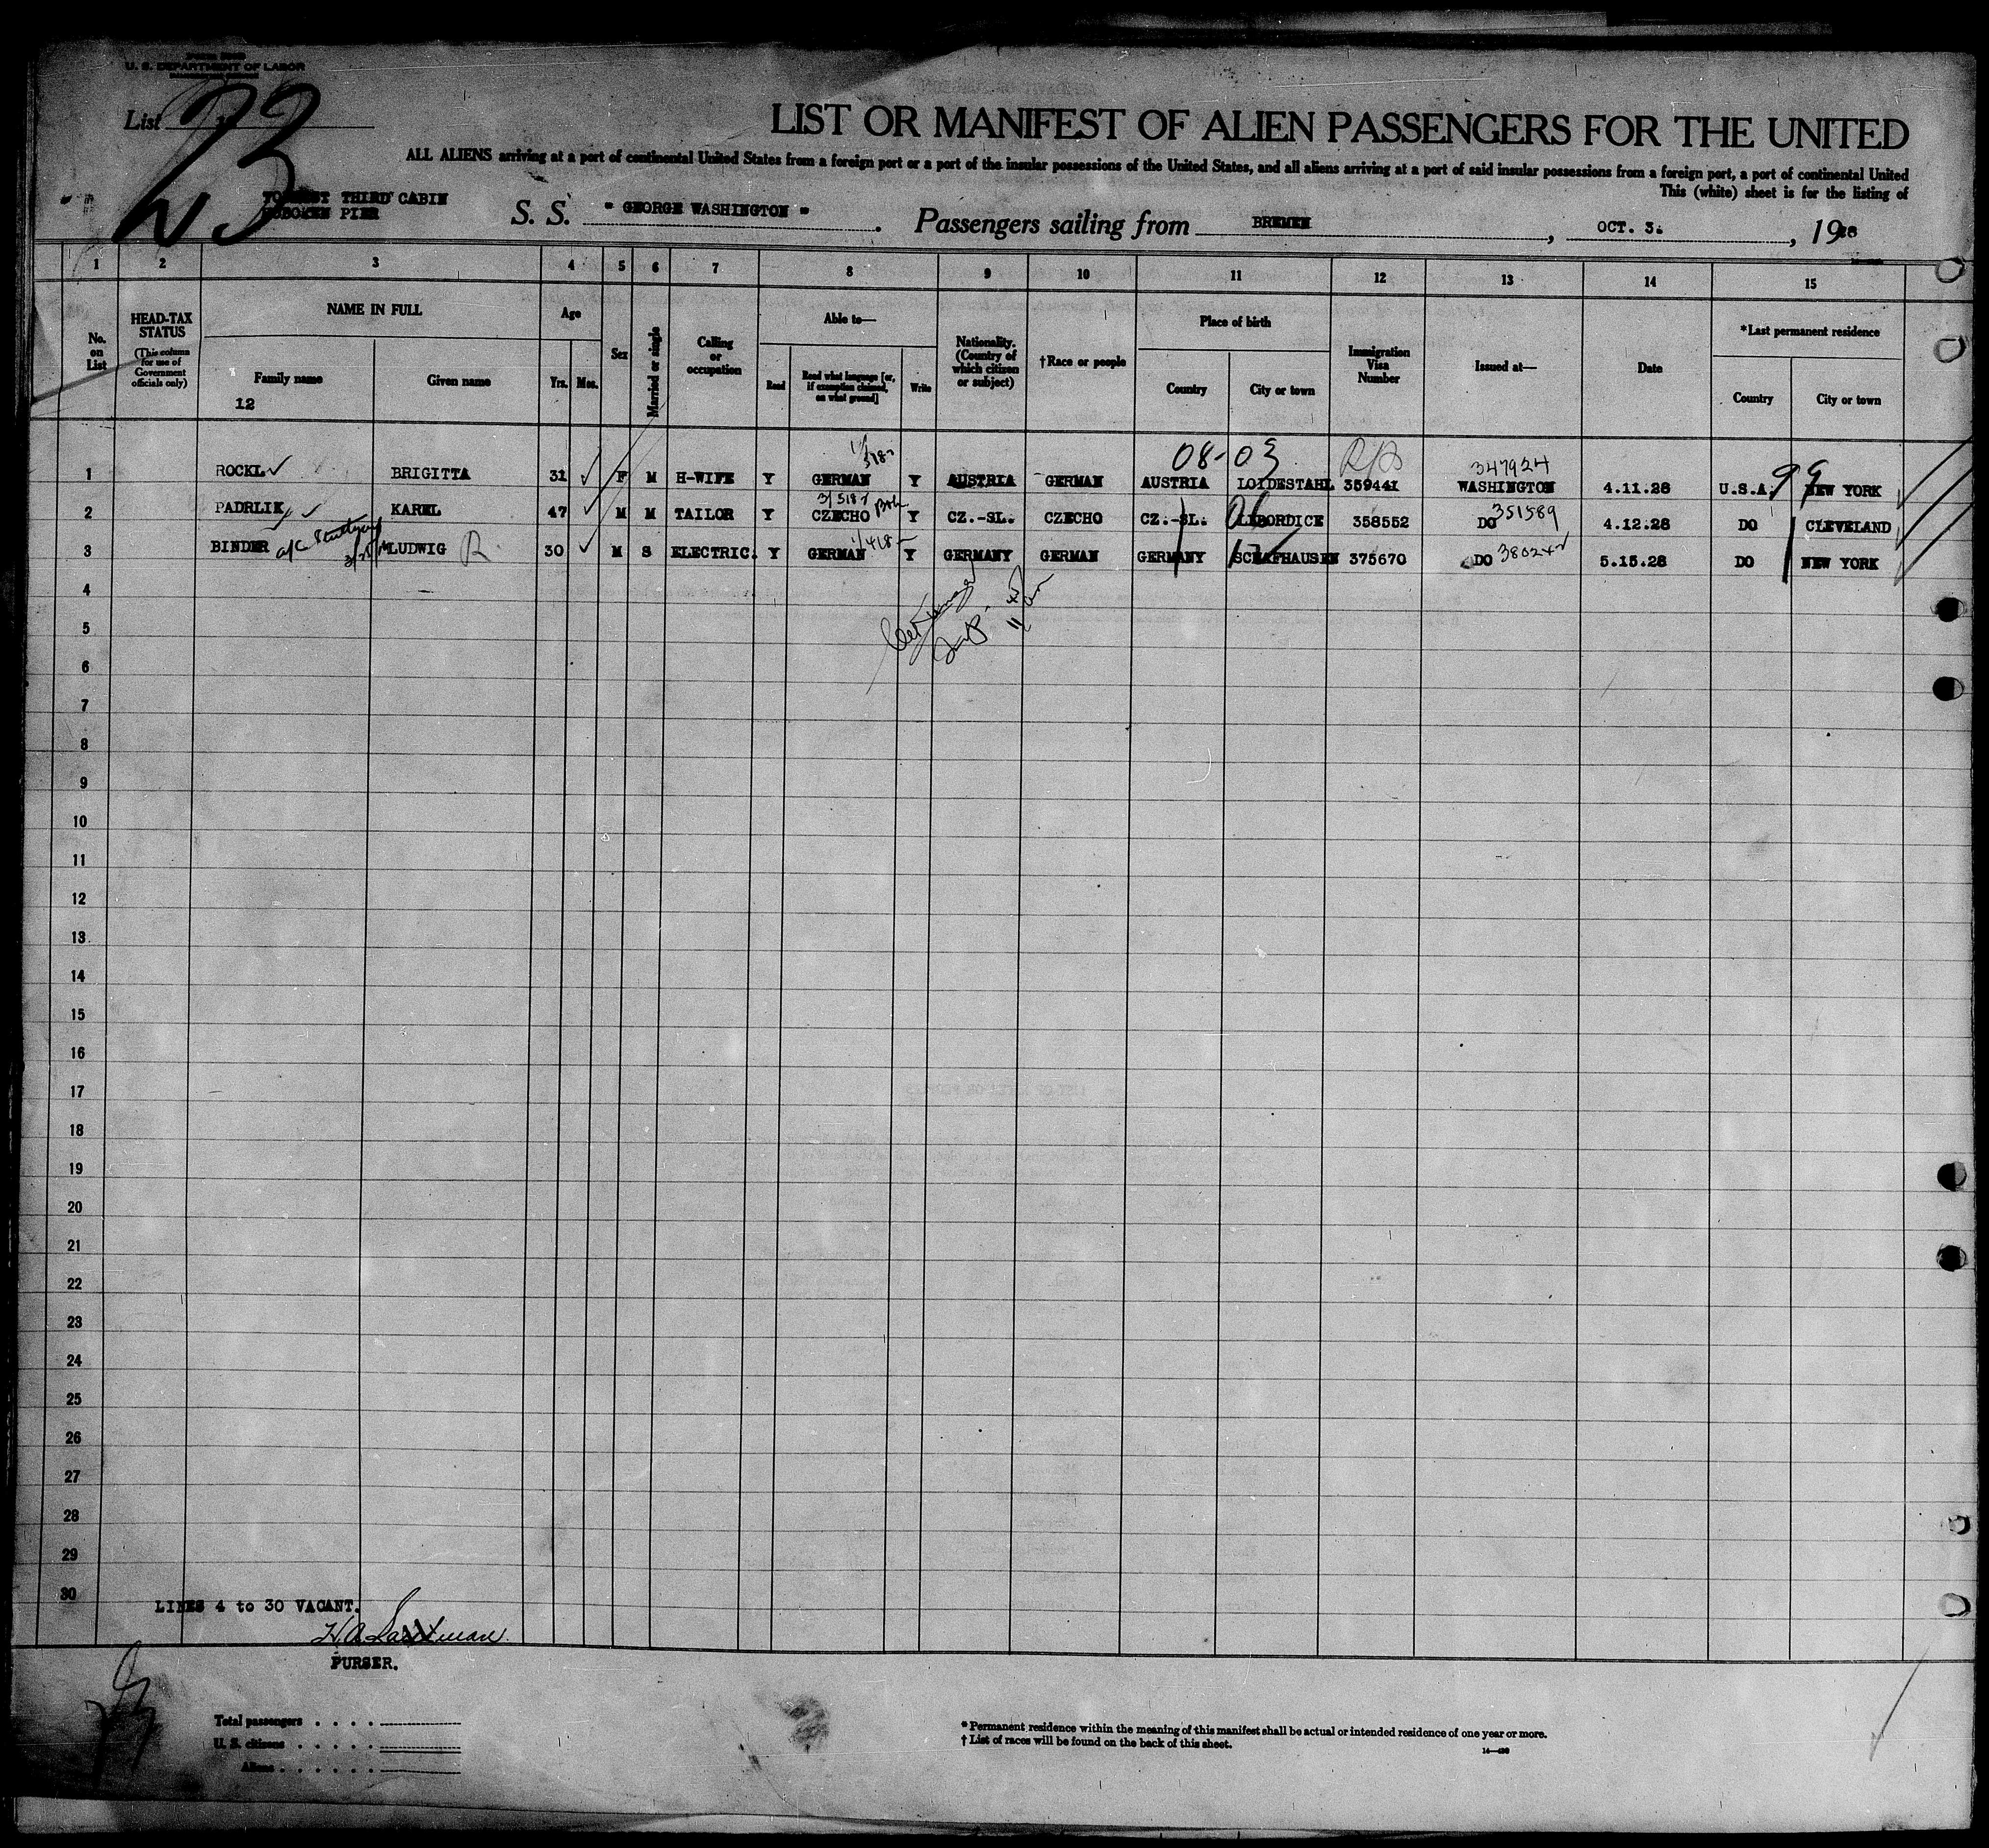 U. S. DEPARTMENT OF LABOR
List
23
LIST OR MANIFEST OF ALIEN PASSENGERS FOR THE UNITED
ALL ALIENS arriving at a port of continental United States from a foreign port or a port of the insular possessions of the United States, and all aliens arriving at a port of said insular possessions from a foreign port, a port of continental United
This (white) sheet is for the listing of
TOURIST THIRD CABIN
HOBOKEN PIER
S. S. " GEORGE WASHINGTON " . Passengers sailing from BREMEN , OCT. 3. , 1928
1 2 3 4 5 6 7 8 9 10 11 12 13 14 15
No. on List
HEAD-TAX STATUS (This column for use of Government officials only)
NAME IN FULL
Family name
Given name
12
Age
Yrs. Mos.
Sex
Married or single
Calling or occupation
Able to—
Read
Read what language [or, if exemption claimed, on what ground]
Write
Nationality. (Country of which citizen or subject)
†Race or people
Place of birth
Country
City or town
Immigration Visa Number
Issued at—
Date
*Last permanent residence
Country
City or town
08-03 347924 99
1 ROCKL BRIGITTA 31 F M H-WIFE Y GERMAN Y AUSTRIA GERMAN AUSTRIA LOIDESTAHL 359441 WASHINGTON 4.11.28 U.S.A. NEW YORK
06 351589
2 PADRLIK KAREL 47 M M TAILOR Y CZECHO Y CZ.-SL. CZECHO CZ.-SL. LIBORDICE 358552 DO 4.12.28 DO CLEVELAND
3 BINDER LUDWIG R 30 M S ELECTRIC. Y GERMAN Y GERMANY GERMAN GERMANY SCHAFHAUSEN 375670 DO 5.15.28 DO NEW YORK
4
5
6
7
8
9
10
11
12
13
14
15
16
17
18
19
20
21
22
23
24
25
26
27
28
29
30
LINES 4 to 30 VACANT.
PURSER.
Total passengers
U. S. citizens
Aliens
* Permanent residence within the meaning of this manifest shall be actual or intended residence of one year or more.
† List of races will be found on the back of this sheet.